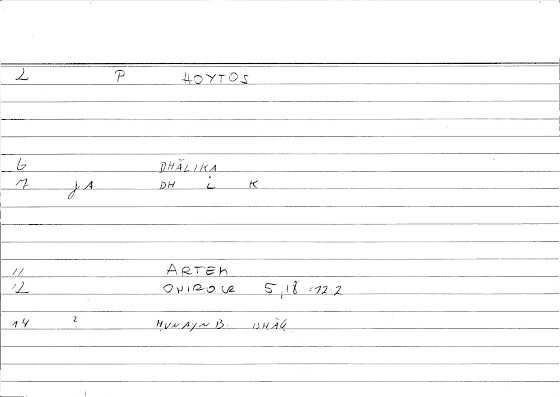 2 P HOYTOS
6 DHĀLIKA
7 JA DH L K
11 ARTEM
12 ONIROCR 5,18 = 12.2
14 ? HUNAYN B. ISHĀQ